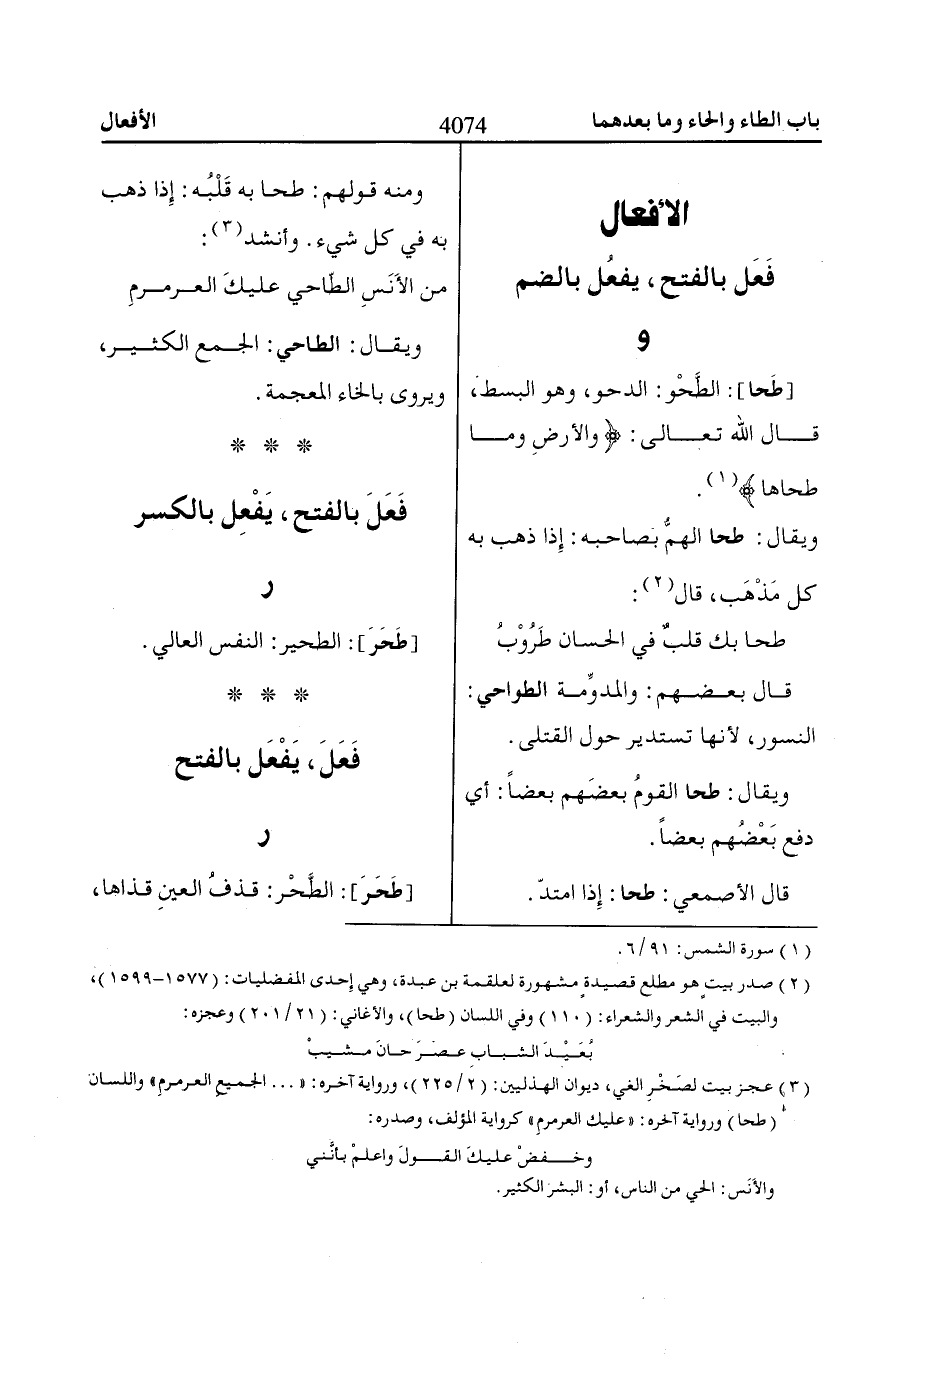 باب الطاء والحاء وما بعدهما
4074
الأفعال
الأفعال
فَعَل بالفتح، يفعُل بالضم
و
[طَحا]: الطَّحْو: الدحو، وهو البسط،
قال الله تعالى: ﴿والأرضِ وما
طحاها﴾(١).
ويقال: طحا الهمُّ بصاحبه: إِذا ذهب به
كل مَذْهَب، قال(٢):
طحا بك قلبٌ في الحسان طَرُوْبُ
قال بعضهم: والمدوِّمة الطواحي:
النسور، لأنها تستدير حول القتلى.
ويقال: طحا القومُ بعضَهم بعضاً: أي
دفع بَعْضُهم بعضاً.
قال الأصمعي: طحا: إِذا امتدّ.
ومنه قولهم: طحا به قَلْبُه: إِذا ذهب
به في كل شيء. وأنشد(٣):
من الأنَسِ الطّاحي عليكَ العرمرمِ
ويقال: الطاحي: الجمع الكثير،
ويروى بالخاء المعجمة.
* * *
فَعَلَ بالفتح، يَفْعِل بالكسر
ر
[طَحَرَ]: الطحير: النفس العالي.
* * *
فَعَلَ، يَفْعَل بالفتح
ر
[طَحَرَ]: الطَّحْر: قذفُ العينِ قذاها،
(١) سورة الشمس: ٦/٩١.
(٢) صدر بيت هو مطلع قصيدة مشهورة لعلقمة بن عبدة، وهي إحدى المفضليات: (١٥٧٧-١٥٩٩)،
والبيت في الشعر والشعراء: (١١٠) وفي اللسان (طحا)، والأغاني: (٢٠١/٢١) وعجزه:
بُعَيْدَ الشباب عصرَ حانَ مشيبُ
(٣) عجز بيت لصَخْر الغي، ديوان الهذليين: (٢٢٥/٢)، ورواية آخره: «... الجميع العرمرم» واللسان
(طحا) ورواية آخره: «عليك العرمرم» كرواية المؤلف، وصدره:
وخفضْ عليكَ القولَ واعلمْ بأنَّني
والأنَس: الحي من الناس، أو: البشر الكثير.